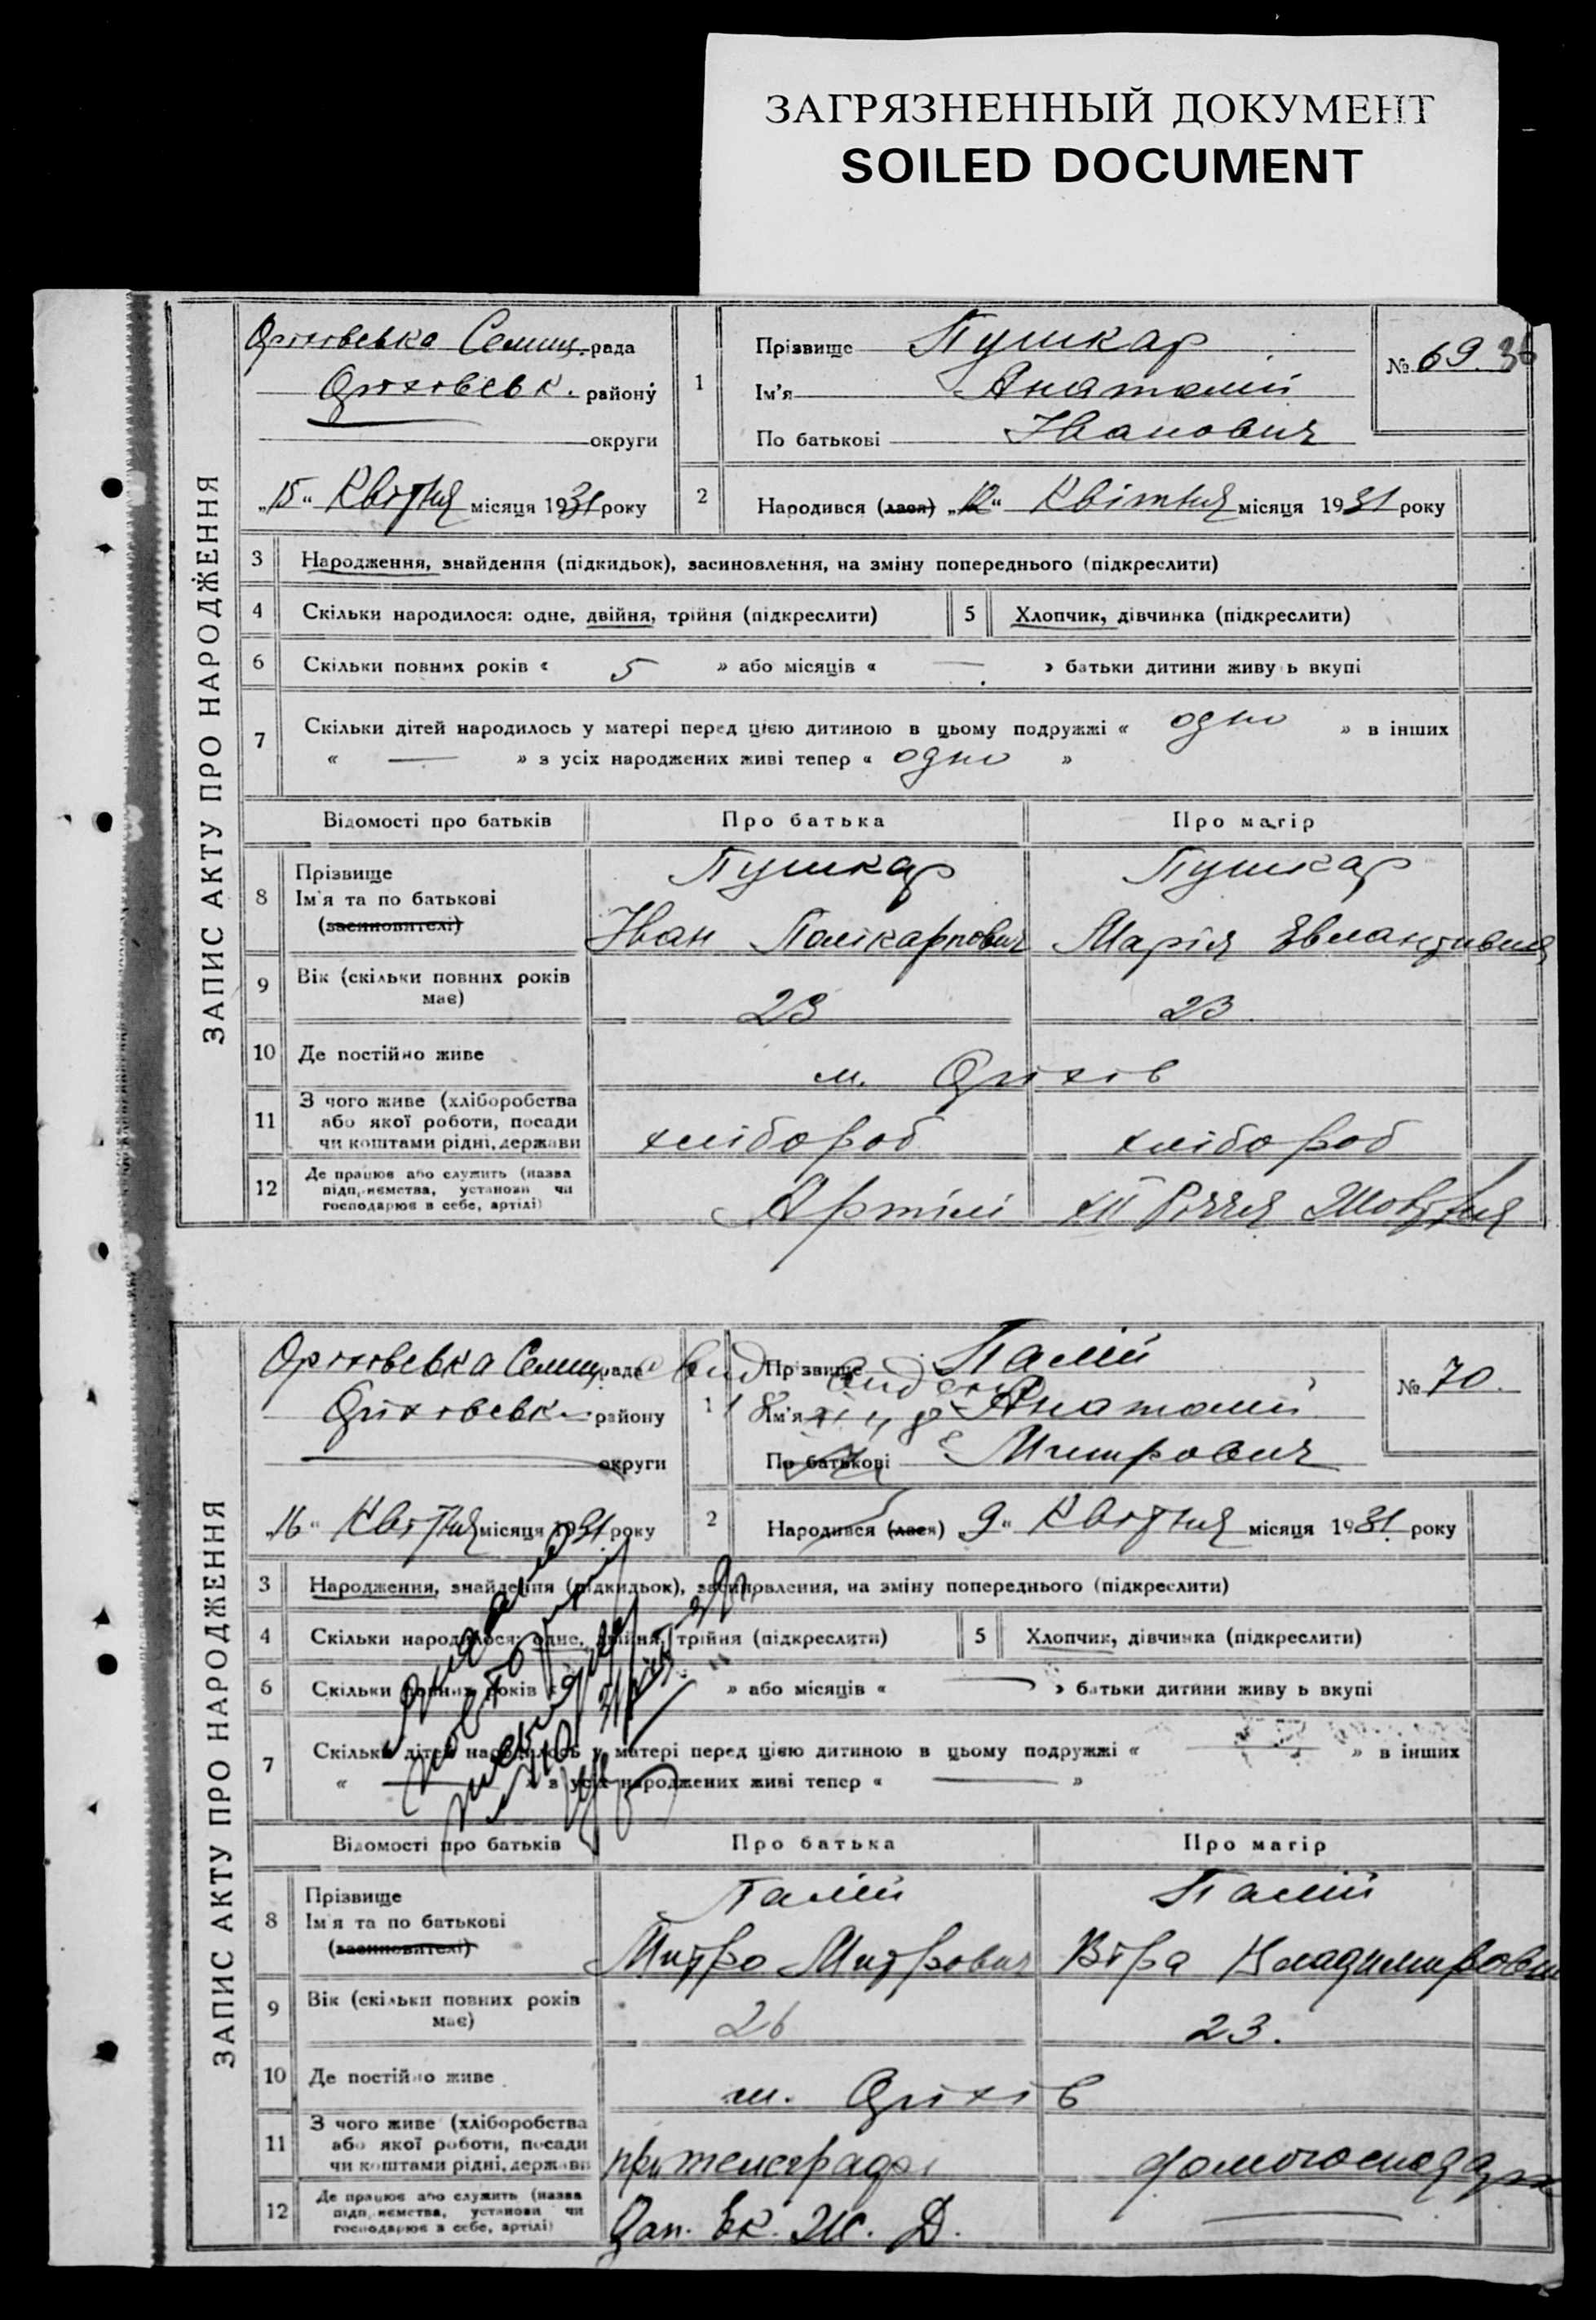 ЗАГРЯЗНЕННЫЙ ДОКУМЕНТ
SOILED DOCUMENT
ЗАПИС АКТУ ПРО НАРОДЖЕННЯ
Оріхівська Селищ. рада
Оріхівськ. району
округи
„15“ Квітня місяця 1931 року
1
Прізвище Пушкар
Ім'я Анатолій
По батькові Іванович
№ 69.
2
Народився (лася) „12“ Квітня місяця 1931 року
3 Народження, знайдення (підкидьок), засиновлення, на зміну попереднього (підкреслити)
4 Скільки народилося: одне, двійня, трійня (підкреслити)
5 Хлопчик, дівчинка (підкреслити)
6 Скільки повних років « 5 » або місяців « — » батьки дитини живу ь вкупі
7 Скільки дітей народилось у матері перед цією дитиною в цьому подружжі « одно » в інших
« — » з усіх народжених живі тепер « одно »
Відомості про батьків Про батька Про матір
8 Прізвище Пушкар Пушкар
Ім'я та по батькові Іван Полікарпович Марія
(засиновителі)
9 Вік (скільки повних років має) 23 23
10 Де постійно живе м. Оріхів
11 З чого живе (хліборобства
або якої роботи, посади
чи коштами рідні, держави хлібороб хлібороб
12 Де працює або служить (назва
підприємства, установи чи
господарює в себе, артілі) Артілі XII Річчя Жовтня
ЗАПИС АКТУ ПРО НАРОДЖЕННЯ
Оріхівська Селищ. рада
Оріхівськ. району
округи
„16“ Квітня місяця 1931 року
1
Прізвище Палій
Ім'я Анатолій
По батькові Митрович
№ 70.
2
Народився (лася) „9“ Квітня місяця 1931 року
3 Народження, знайдення (підкидьок), засиновлення, на зміну попереднього (підкреслити)
4 Скільки народилося: одне, двійня, трійня (підкреслити)
5 Хлопчик, дівчинка (підкреслити)
6 Скільки повних років « » або місяців « — » батьки дитини живу ь вкупі
7 Скільки дітей народилось у матері перед цією дитиною в цьому подружжі « — » в інших
« — » з усіх народжених живі тепер « — »
Відомості про батьків Про батька Про матір
8 Прізвище Палій Палій
Ім'я та по батькові Митро Митрович Віра Владимировн
(засиновителі)
9 Вік (скільки повних років має) 26 23.
10 Де постійно живе м. Оріхів
11 З чого живе (хліборобства
або якої роботи, посади
чи коштами рідні, держави при телеграфі домогосподарк
12 Де працює або служить (назва
підприємства, установи чи
господарює в себе, артілі) Зап. Ек. Ж. Д. —